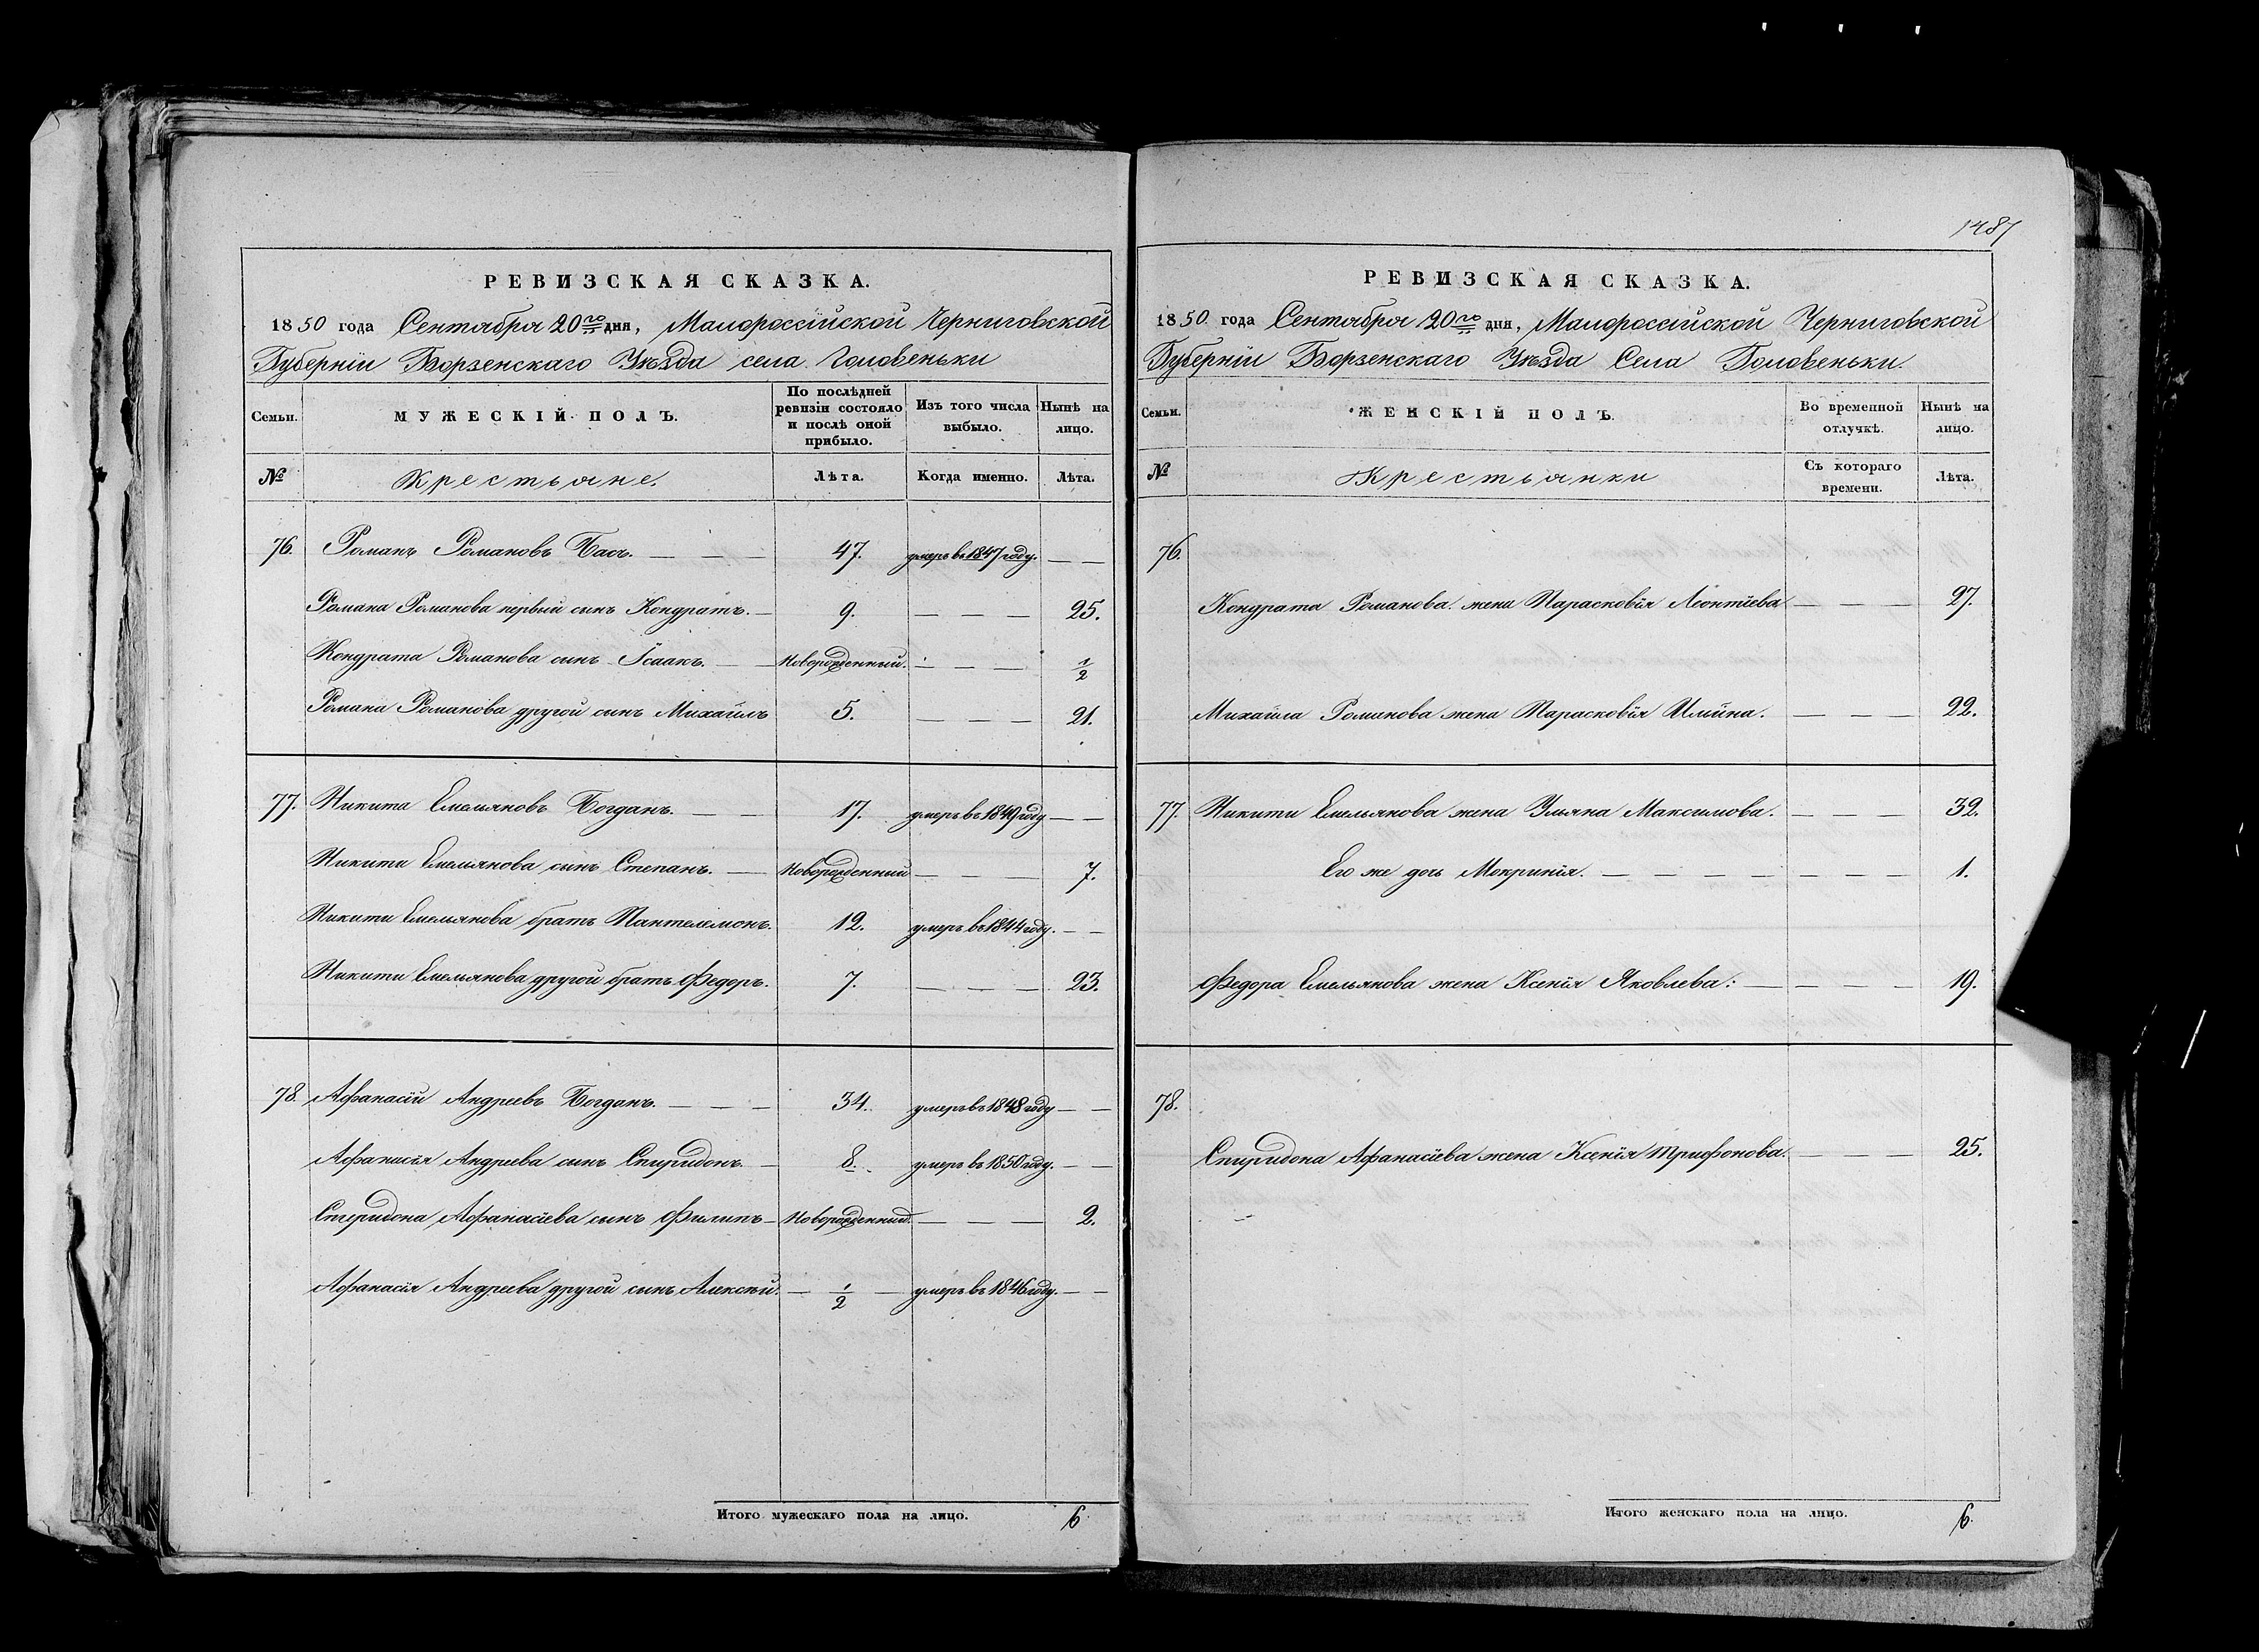 РЕВИЗСКАЯ СКАЗКА.
1850 года Сентября 20го дня, Малороссійской Черниговской
Губерніи Борзенскаго Уѣзда села Головеньки
Семьи. МУЖЕСКІЙ ПОЛЪ. По послѣдней ревизіи состояло и послѣ оной прибыло. Изъ того числа выбыло. Нынѣ на лицо.
№ Крестьяне. Лѣта. Когда именно. Лѣта.
76. Романъ Романовъ Басъ. — — 47. умеръ въ 1847 году. — —
Романа Романова первый сынъ Кондратъ. — 9. — — — 25.
Кондрата Романова сынъ Ісаакъ. — Новорожденный. — — — 1/2
Романа Романова другой сынъ Михайлъ 5. — — — 21.
77. Никита Емельяновъ Богданъ. — — 17. умеръ въ 1849 году — —
Никиты Емельянова сынъ Степанъ. — Новорожденный — — — 7.
Никиты Емельянова братъ Пантелемонъ. 12. умеръ въ 1844 году. — —
Никиты Емельянова другой братъ Федоръ. 7. — — — 23.
78. Афанасій Андреевъ Богданъ. — — — 34. умеръ въ 1848 году — —
Афанасія Андреева сынъ Спиридонъ. — 8. умеръ въ 1850 году. — —
Спиридона Афанасіева сынъ Филипъ — Новорожденный. — — — 2.
Афанасія Андреева другой сынъ Алексѣй. — 1/2 — умеръ въ 1846 году. — —
Итого мужескаго пола на лицо. 6.
1487
РЕВИЗСКАЯ СКАЗКА.
1850. года Сентября 20го дня, Малороссійской Черниговской
Губерніи Борзенскаго Уѣзда Села Головеньки.
Семьи. ЖЕНСКІЙ ПОЛЪ. Во временной отлучкѣ. Нынѣ на лицо.
№ Крестьянки Съ котораго времени. Лѣта.
76.
Кондрата Романова жена Парасковія Леонтіева — — — 27.
Михайла Романова жена Парасковія Ильина. — — — 22.
77. Никиты Емельянова жена Ульяна Максимова. — — — 32.
Его же дочь Мокринія. — — — — — — — 1.
Федора Емельянова жена Ксенія Яковлева: — — — — 19.
78.
Спиридона Афанасіева жена Ксенія Трифонова. — — — 25.
Итого женскаго пола на лицо. 6.